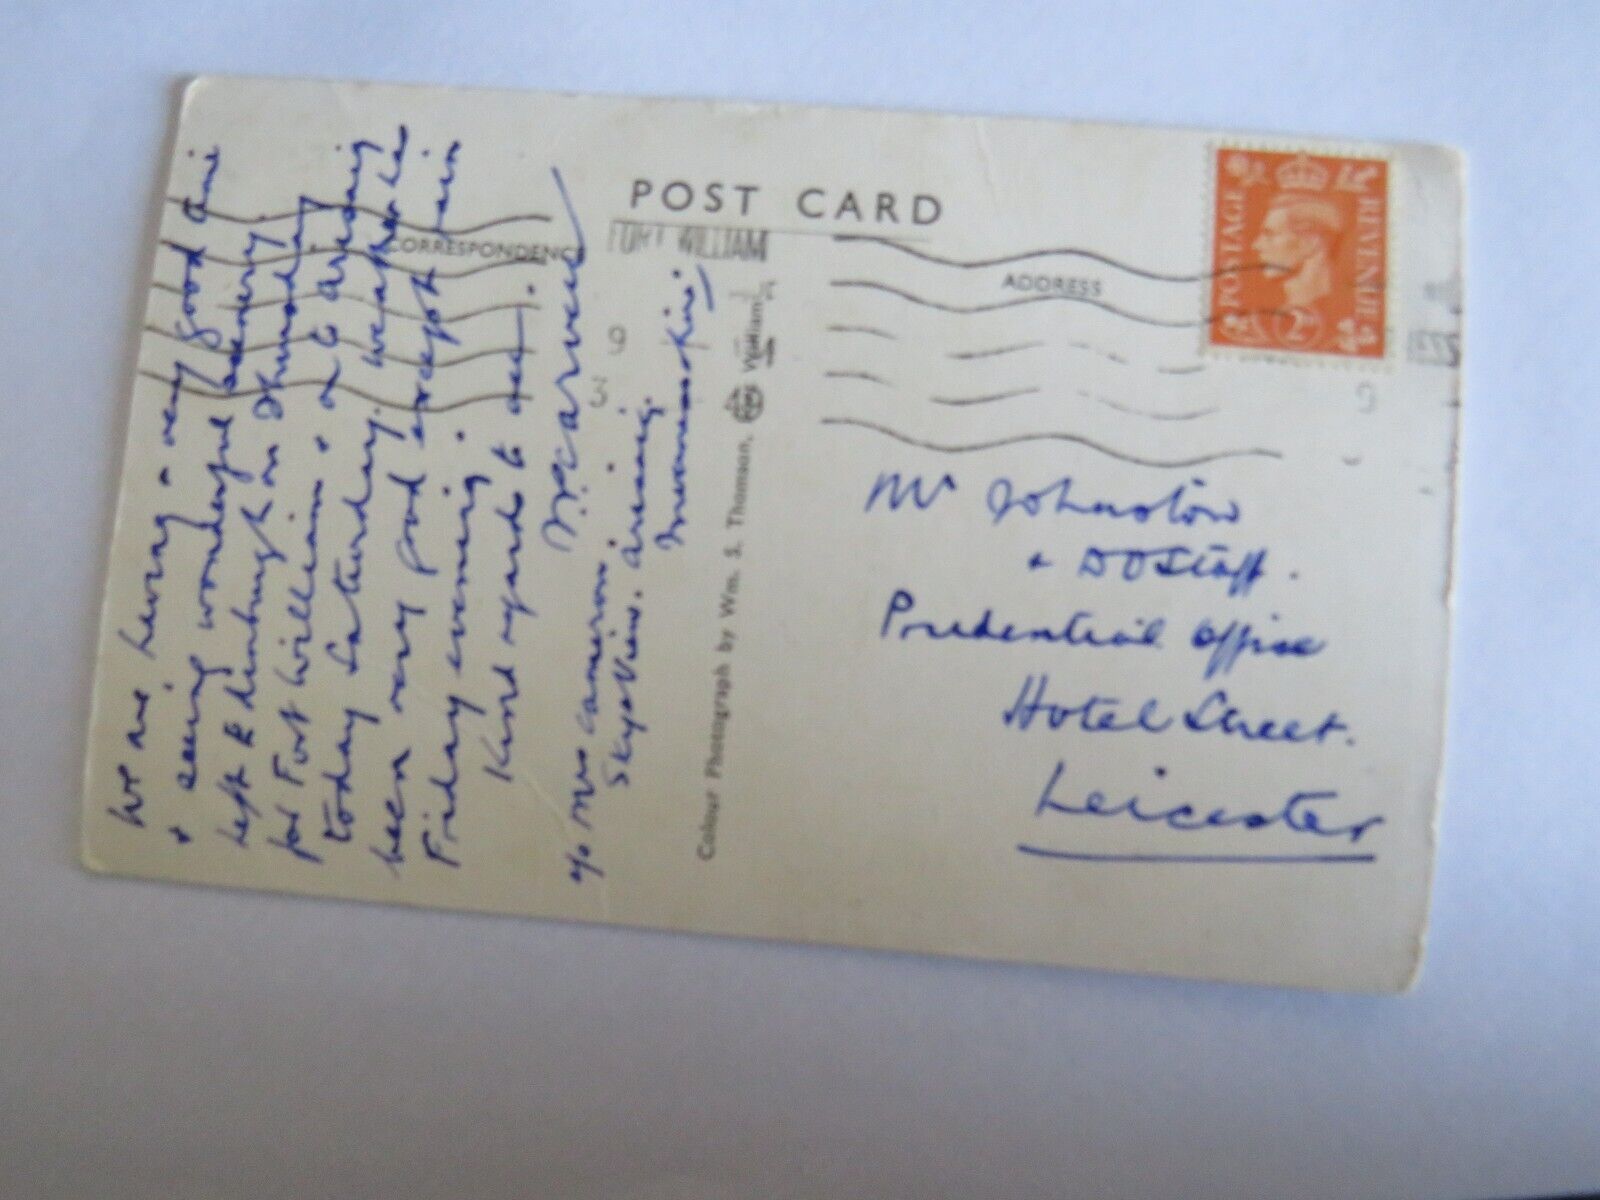 POST CARD
CORRESPONDENC
ADDRESS
FORT WILLIAM
POSTAGE
REVENUE
2D
We are having a very good time
+ seeing wonderful scenery.
Left Edinburgh on Thursday
for Fort William + on to Arisaig
today Saturday. Weather has
been very good except rain
Friday evening.
Kind regards to all.
c/o Mrs Cameron
Skye View. Arisaig.
Inverness-shire.
Colour Photograph by Wm. S. Thomson, Fort William
Mr Johnston
+ D O Staff.
Prudential Office
Hotel Street.
Leicester